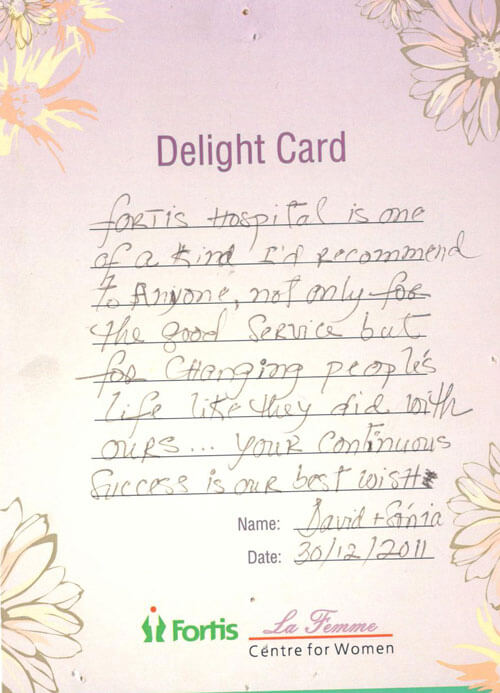 Delight Card
fortis Hospital is one
of a kind I'd recommend
to Anyone, not only for
the good service but
for changing people's
life like they did with
ours... your continuous
success is our best wish
Name: David + Sónia
Date: 30/12/2011
Fortis La Femme
Centre for Women